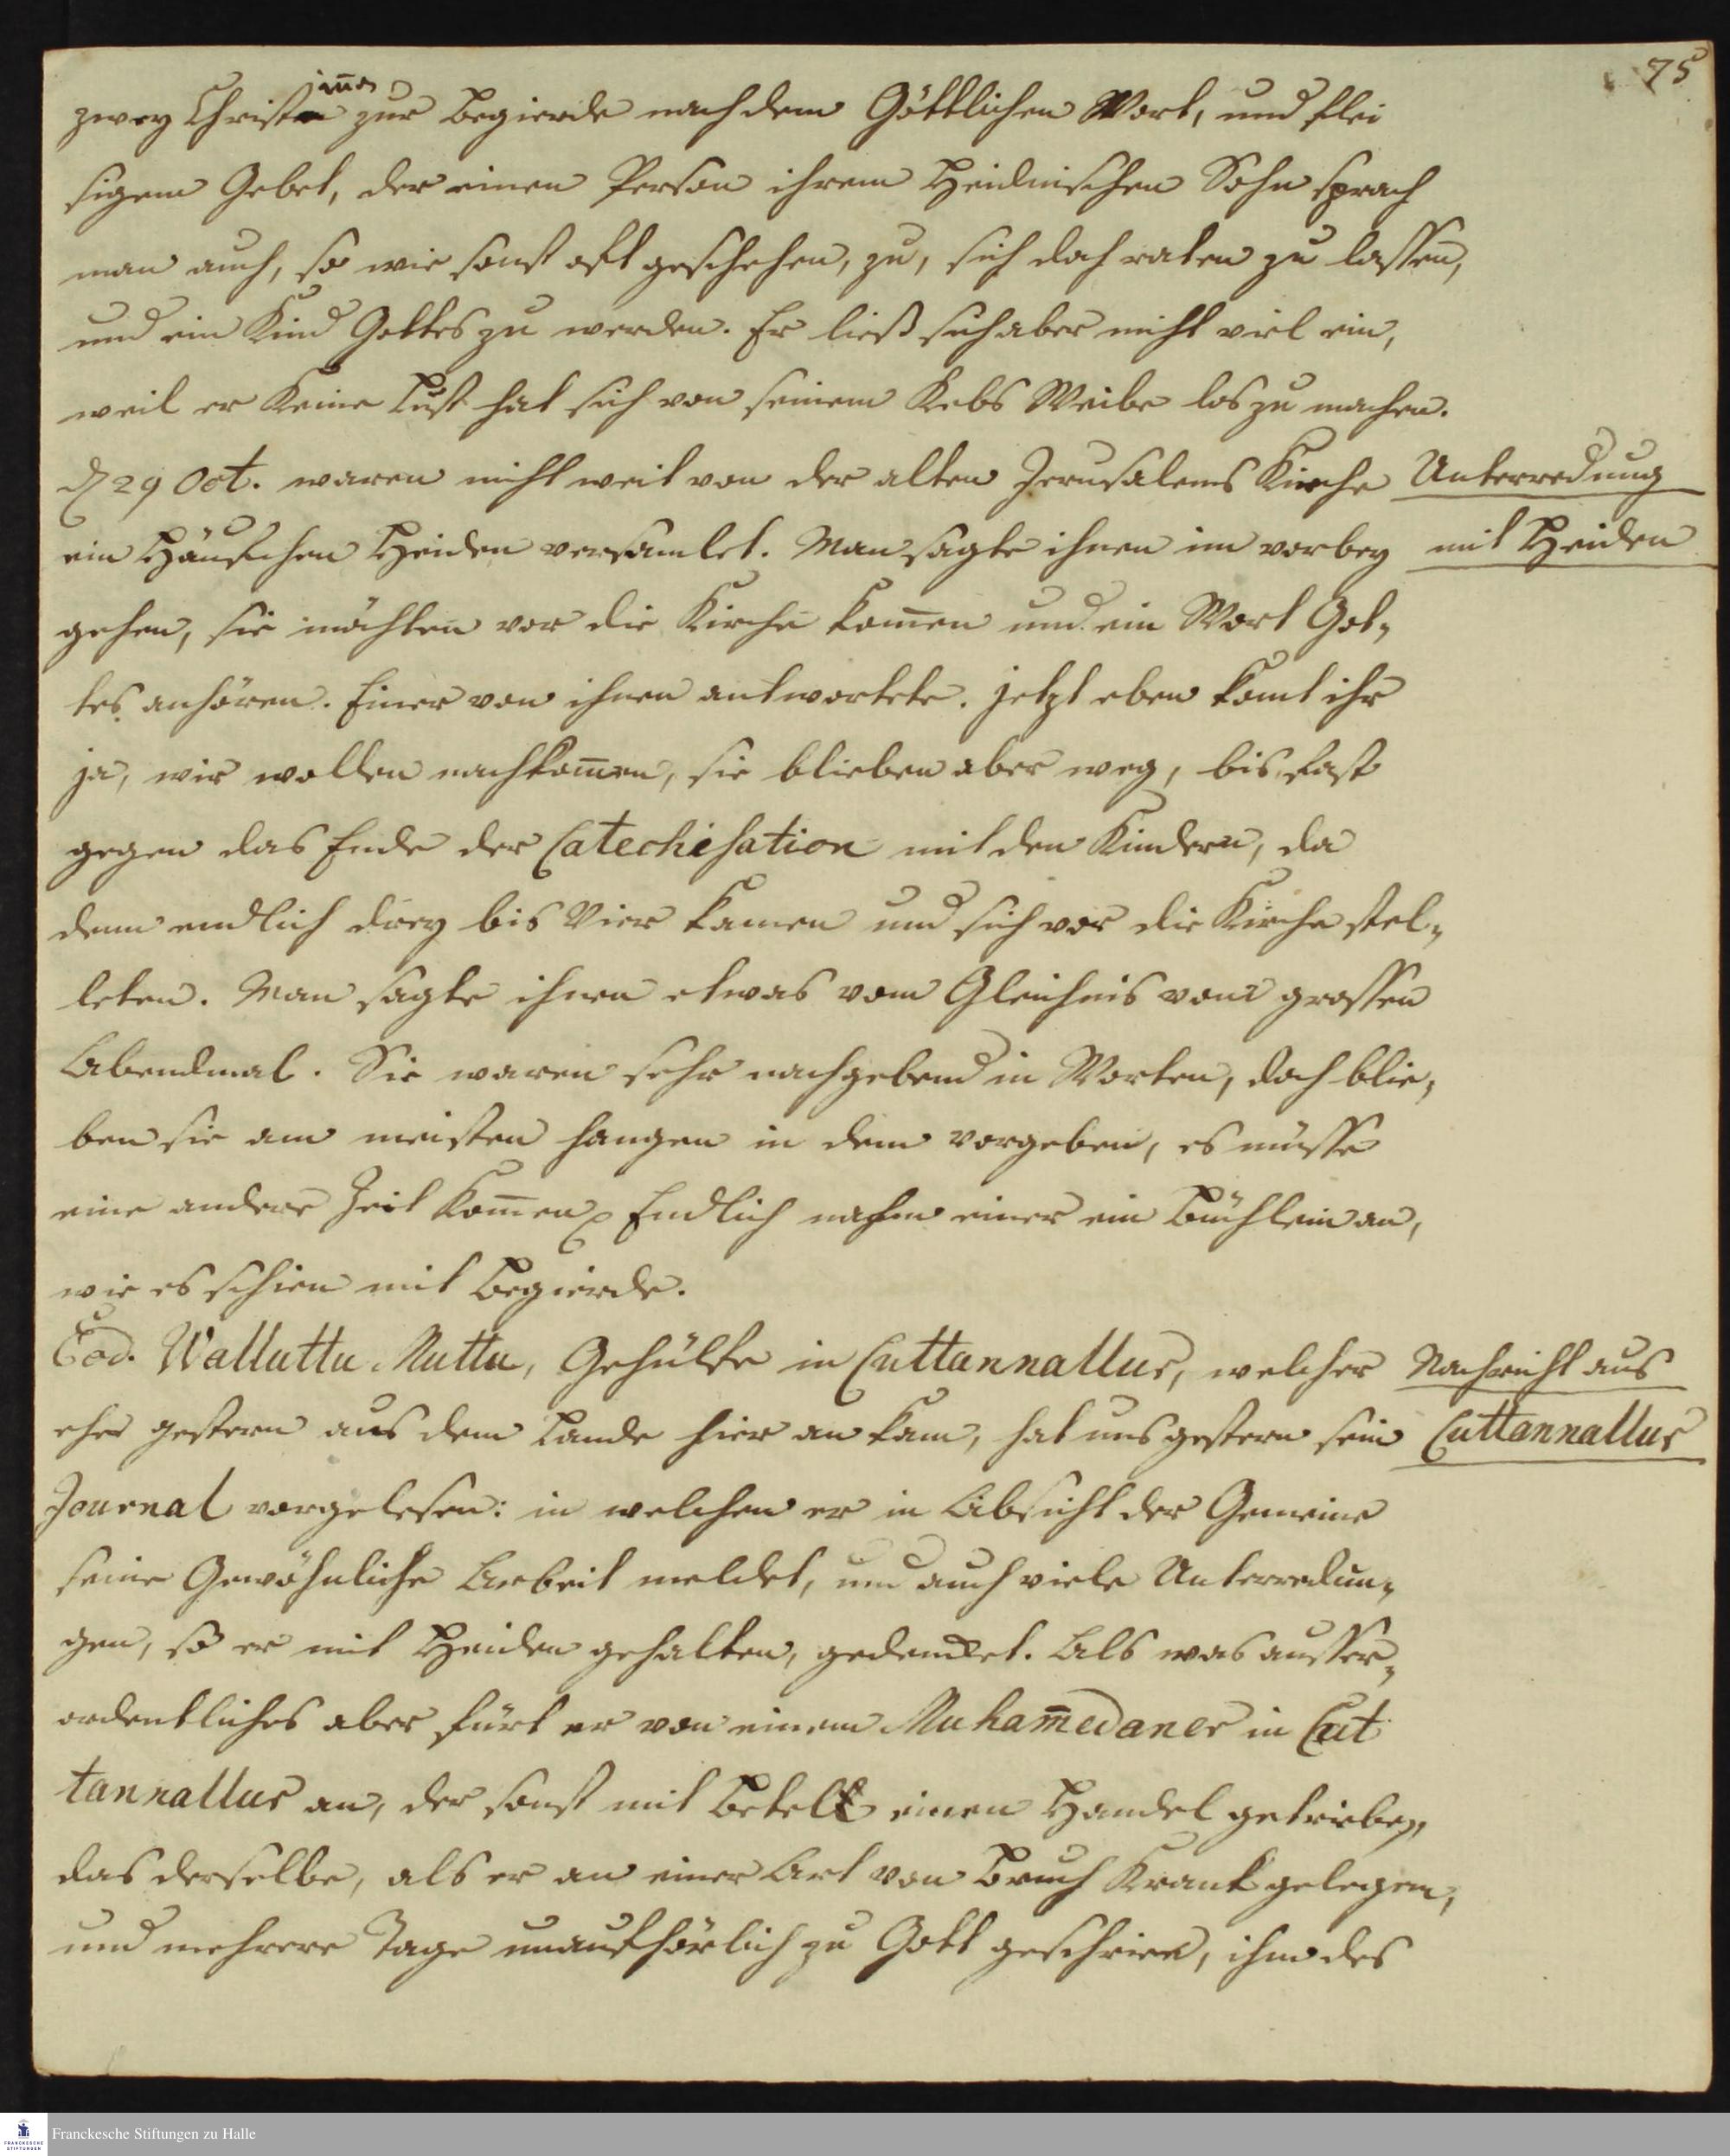 75
zwey Christinnen zur Begierde nach dem Göttlichen Wort, und flei
sigem Gebet, der einen Person ihrem Heidnischen Sohn sprach
man auch, so wie sonst oft geschehen, zu, sich doch raten zu lassen,
und ein Kind Gottes zu werden. Er ließ sich aber nicht viel ein,
weil er keine Lust hat sich von seinem Kebs Weibe los zu machen.
d 29 Oct. waren nicht weit von der alten Jerusalems Kirche
Unterredung
ein Häufchen Heiden versamlet. Man sagte ihnen im vorbey
mit Heiden
gehen, sie möchten vor die Kirche kom̄en und ein Wort Got-
tes anhören. Einer von ihnen antwortete. jetzt eben komt ihr
ja, wir wollen nachkom̄en, sie blieben aber weg, bis fast
gegen das Ende der Catechisation mit den Kindern, da
denn endlich drey bis Vier kamen und sich vor die Kirche stel-
leten. Man sagte ihnen etwas vom Gleichnis vom grossen
Abendmal. Sie waren sehr nachgebend in Worten, doch blie-
ben sie am meisten hangen in dem vorgeben, es müsse
eine andere Zeit kom̄en. Endlich nahm einer ein Büchlein an,
wie es schien mit Begierde.
Eod. Walluttu Muttu, Gehülfe in Cuttannallur, welcher
Nachricht aus
eher gestern aus dem Lande hier an kam, hat uns gestern sein
Cuttannallur
Journal vorgelesen: in welchen er in Absicht der Gemeine
seine Gewöhnliche Arbeit meldet, und auch viele Unterredun-
gen, so er mit Heiden gehalten, gedencket. Als was ausser-
ordentliches aber fürt er von einem Muham̄edaner in Cut
tannallur an, der sonst mit Betell einen Handel getrieben,
das derselbe, als er an einer Art von Bruch krank gelegen,
und mehrere Tage unaufhörlich zu Gott geschrien, ihm des
Franckesche Stiftungen zu Halle